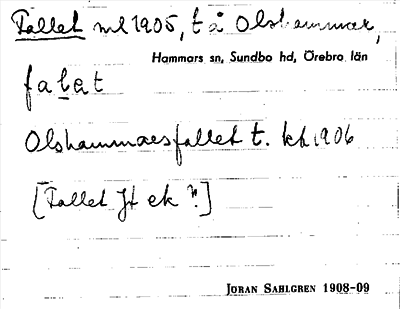 Fallet ml 1905, t å Olshammar,
Hammars sn, Sundbo hd, Örebro län
falet
Olshammarsfallet t. kb 1906
[Fallet Jt ek ?]
JÖRAN SAHLGREN 1908-09